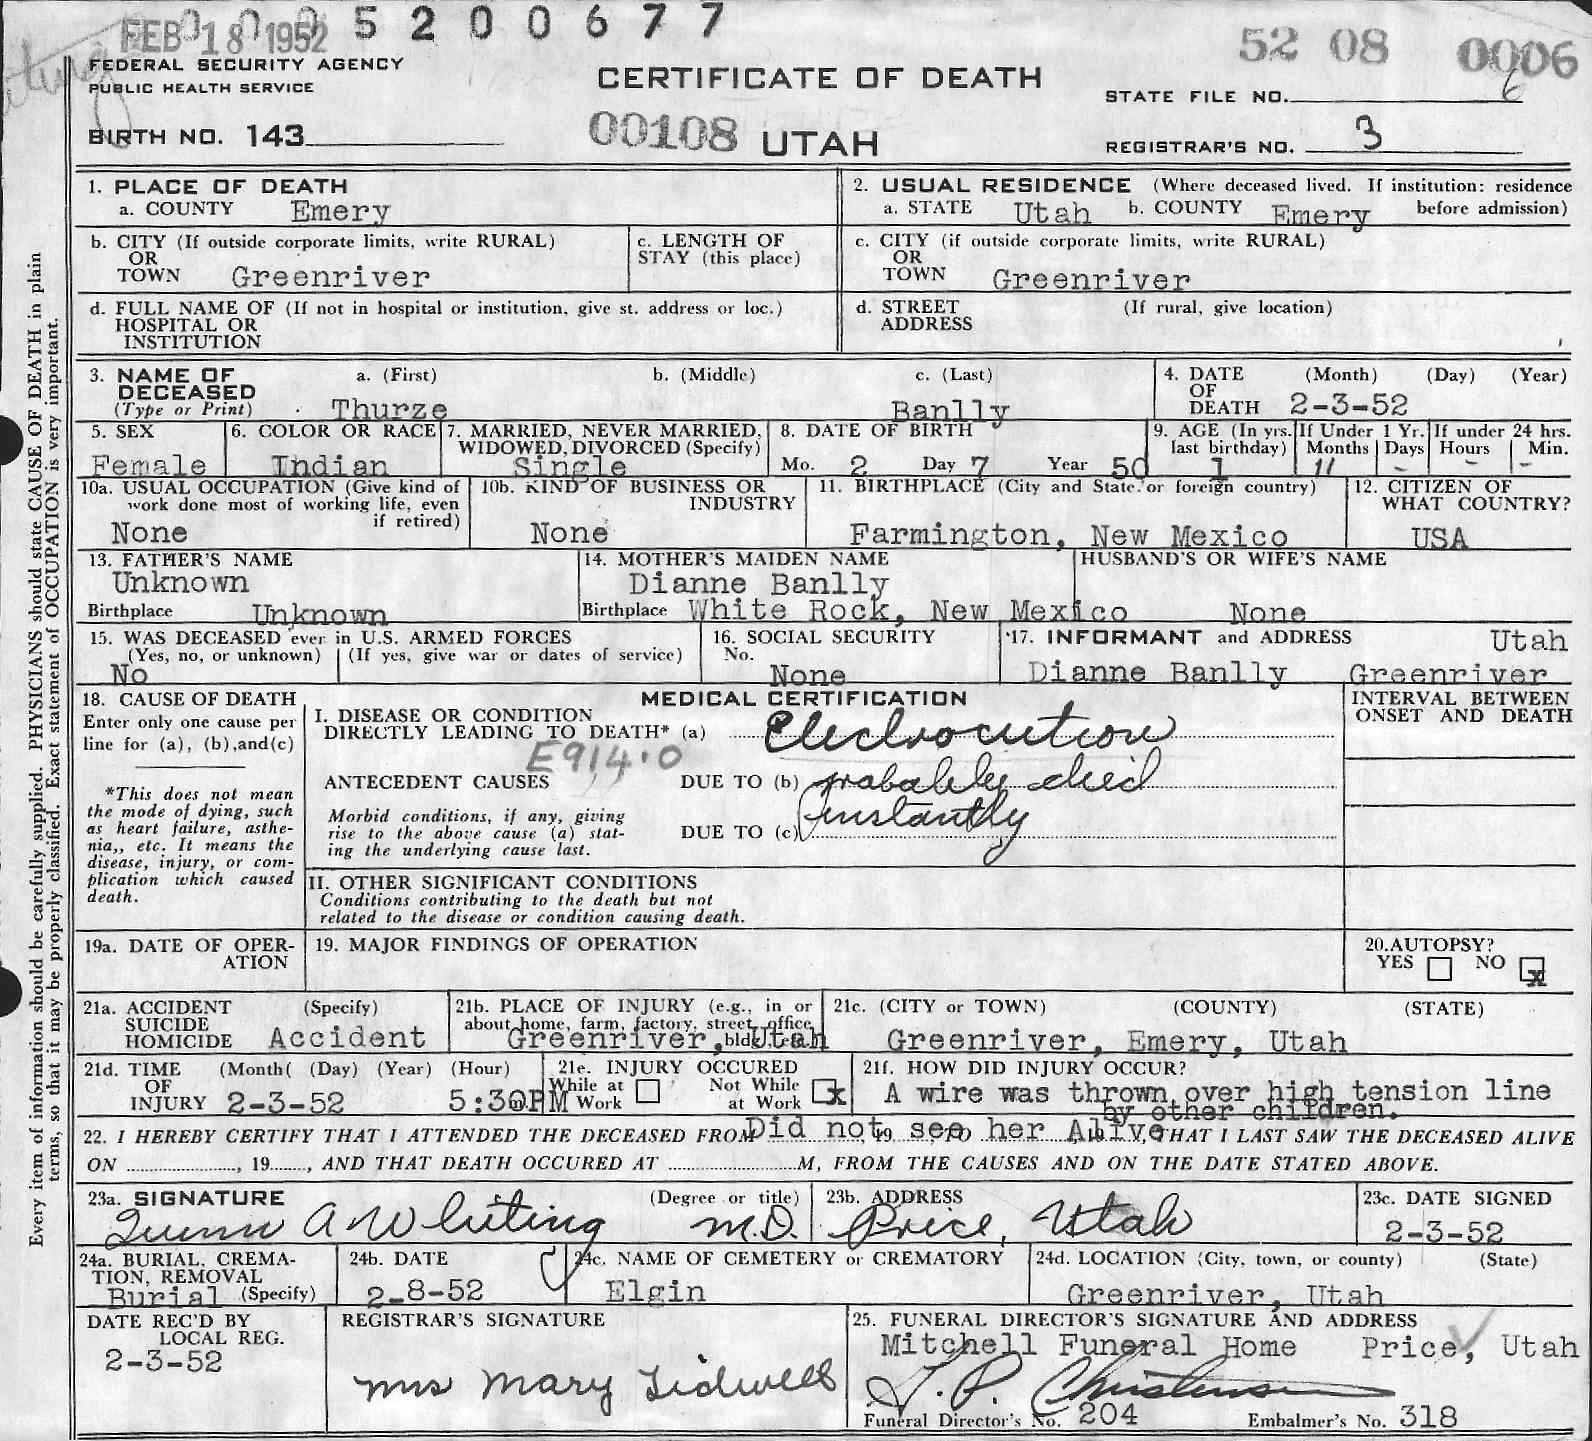 FEB 18 1952 5 2 0 0 6 7 7
52 08 0006
FEDERAL SECURITY AGENCY
PUBLIC HEALTH SERVICE
CERTIFICATE OF DEATH
STATE FILE NO. 6
BIRTH NO. 143
00108 UTAH
REGISTRAR'S NO. 3
1. PLACE OF DEATH
a. COUNTY Emery
2. USUAL RESIDENCE (Where deceased lived. If institution: residence before admission)
a. STATE Utah b. COUNTY Emery
b. CITY (If outside corporate limits, write RURAL)
OR
TOWN Greenriver
c. LENGTH OF
STAY (this place)
c. CITY (if outside corporate limits, write RURAL)
OR
TOWN Greenriver
d. FULL NAME OF (If not in hospital or institution, give st. address or loc.)
HOSPITAL OR
INSTITUTION
d. STREET (If rural, give location)
ADDRESS
3. NAME OF DECEASED
(Type or Print)
a. (First) b. (Middle) c. (Last)
Thurze Banlly
4. DATE OF DEATH (Month) (Day) (Year)
2-3-52
5. SEX
Female
6. COLOR OR RACE
Indian
7. MARRIED, NEVER MARRIED,
WIDOWED, DIVORCED (Specify)
Single
8. DATE OF BIRTH
Mo. 2 Day 7 Year 50
9. AGE (In yrs. last birthday) 1
If Under 1 Yr. Months 11 Days -
If under 24 hrs. Hours - Min. -
10a. USUAL OCCUPATION (Give kind of
work done most of working life, even
if retired)
None
10b. KIND OF BUSINESS OR
INDUSTRY
None
11. BIRTHPLACE (City and State or foreign country)
Farmington, New Mexico
12. CITIZEN OF
WHAT COUNTRY?
USA
13. FATHER'S NAME
Unknown
Birthplace Unknown
14. MOTHER'S MAIDEN NAME
Dianne Banlly
Birthplace White Rock, New Mexico
HUSBAND'S OR WIFE'S NAME
None
15. WAS DECEASED ever in U.S. ARMED FORCES
(Yes, no, or unknown) (If yes, give war or dates of service)
No
16. SOCIAL SECURITY
No.
None
17. INFORMANT and ADDRESS Utah
Dianne Banlly Greenriver
18. CAUSE OF DEATH
Enter only one cause per
line for (a), (b), and (c)
*This does not mean
the mode of dying, such
as heart failure, asthe-
nia,, etc. It means the
disease, injury, or com-
plication which caused
death.
MEDICAL CERTIFICATION
INTERVAL BETWEEN
ONSET AND DEATH
I. DISEASE OR CONDITION
DIRECTLY LEADING TO DEATH* (a) Electrocution
E914.0
ANTECEDENT CAUSES DUE TO (b) probably died
instantly
Morbid conditions, if any, giving
rise to the above cause (a) stat-
ing the underlying cause last.
DUE TO (c)
II. OTHER SIGNIFICANT CONDITIONS
Conditions contributing to the death but not
related to the disease or condition causing death.
19a. DATE OF OPER-
ATION
19. MAJOR FINDINGS OF OPERATION
20. AUTOPSY?
YES NO x
21a. ACCIDENT (Specify)
SUICIDE
HOMICIDE Accident
21b. PLACE OF INJURY (e.g., in or
about home, farm, factory, street, office
bldg., etc.)
Greenriver, Utah
21c. (CITY or TOWN) (COUNTY) (STATE)
Greenriver, Emery, Utah
21d. TIME (Month( (Day) (Year) (Hour)
OF
INJURY 2-3-52 5:30PM
21e. INJURY OCCURED
While at Work Not While at Work x
21f. HOW DID INJURY OCCUR?
A wire was thrown over high tension line
by other children.
22. I HEREBY CERTIFY THAT I ATTENDED THE DECEASED FROM Did not see her Alive, THAT I LAST SAW THE DECEASED ALIVE
ON , 19 , AND THAT DEATH OCCURED AT M, FROM THE CAUSES AND ON THE DATE STATED ABOVE.
23a. SIGNATURE (Degree or title)
Quinn A Whiting M.D.
23b. ADDRESS
Price, Utah
23c. DATE SIGNED
2-3-52
24a. BURIAL, CREMA-
TION, REMOVAL
Burial (Specify)
24b. DATE
2-8-52
24c. NAME OF CEMETERY or CREMATORY
Elgin
24d. LOCATION (City, town, or county) (State)
Greenriver, Utah
DATE REC'D BY
LOCAL REG.
2-3-52
REGISTRAR'S SIGNATURE
Mrs Mary Tidwell
25. FUNERAL DIRECTOR'S SIGNATURE AND ADDRESS
Mitchell Funeral Home Price, Utah
J. P. Christensen
Funeral Director's No. 204 Embalmer's No. 318
Every item of information should be carefully supplied. PHYSICIANS should state CAUSE OF DEATH in plain
terms, so that it may be properly classified. Exact statement of OCCUPATION is very important.